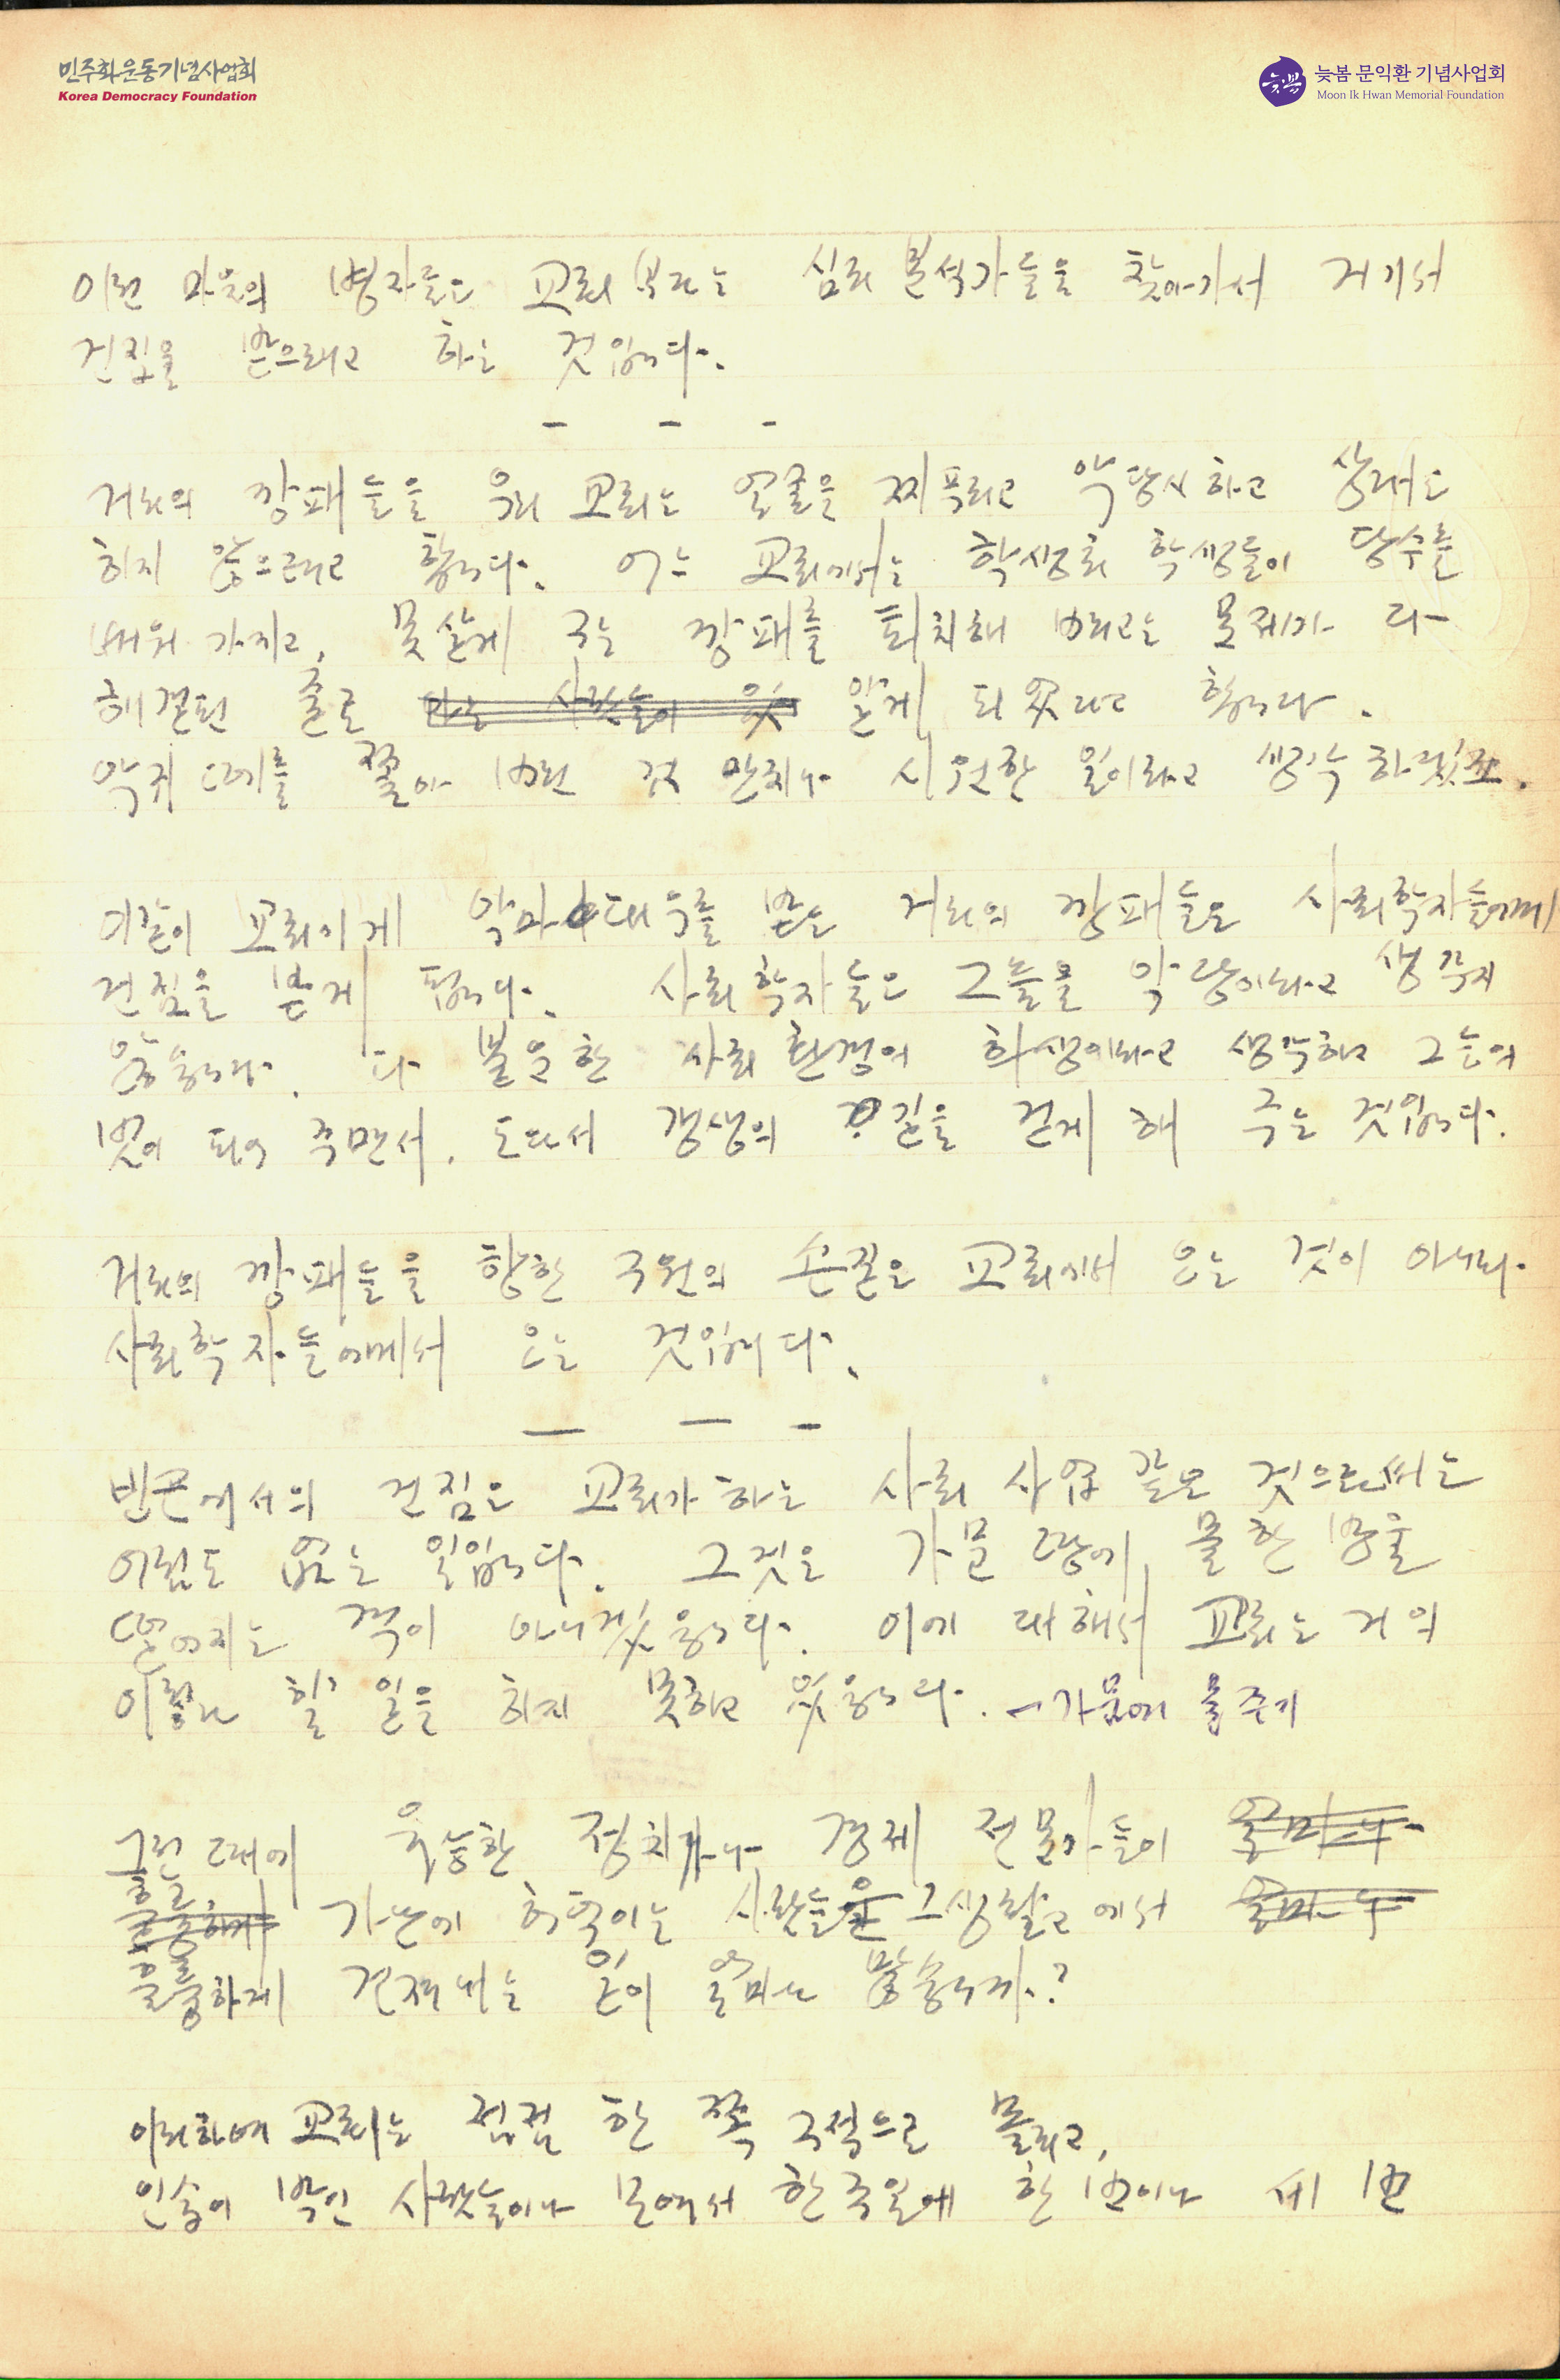 민주화운동기념사업회
Korea Democracy Foundation
늦봄
늦봄 문익환 기념사업회
Moon Ik Hwan Memorial Foundation
이런 마음의 병자들은 교회 보다는 심리 분석가들을 찾아가서 거기서
건짐을 받으려고 하는 것입니다.
- - -
거리의 깡패들을 우리 교회는 얼굴을 찌푸리고 악당시하고 상대도
하지 않으려고 합니다. 어느 교회에서는 학생회 학생들이 당수를
배워 가지고, 못살게 구는 깡패를 퇴치해 버리고는 문제가 다
해결된 줄로 알게 되었다고 합니다.
악귀 떼를 쫓아 버린 것 만치나 시원한 일이라고 생각하겠죠.
이같이 교회에게 악마 대우를 받는 거리의 깡패들은 사회학자들에게
건짐을 받게 됩니다. 사회학자들은 그들을 악당이라고 생각지
않습니다. 다 불우한 사회환경의 희생이라고 생각하고 그들의
벗이 되어 주면서, 도와서 갱생의 길을 걷게 해 주는 것입니다.
거리의 깡패들을 향한 구원의 손길은 교회에서 오는 것이 아니라
사회학자들에게서 오는 것입니다.
- - -
빈곤에서의 건짐은 교회가 하는 사회 사업 같은 것으로써는
어림도 없는 일입니다. 그것은 가문 땅에 물 한 방울
떨어지는 격이 아니겠읍니다. 이에 대해서 교회는 거의
이렇다 할 일을 하지 못하고 있읍니다. - 가뭄에 물주기
그런 때에 유능한 정치가나 경제 전문가들이
가난에 허덕이는 사람들을 그 생활고에서
훌륭하게 건져내는 일이 얼마나 많습니까?
이리하여 교회는 점점 한 쪽 구석으로 몰리고,
인습이 박인 사람들이나 모여서 한 주일에 한 번이나 세 번